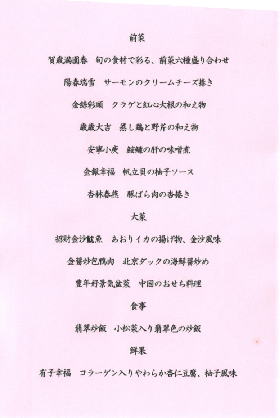 前菜
賀歳満園春 旬の食材で彩る、前菜六種盛り合わせ
陽春瑞雪 サーモンのクリームチーズ捲き
金絲彩頭 クラゲと紅心大根の和え物
歳歳大吉 蒸し鶏と野芹の和え物
安寧小炙 鮟鱇の肝の味噌煮
金銀幸福 帆立貝の柚子ソース
杏林春燕 豚ばら肉の杏捲き
大菜
招財金沙魷魚 あおりイカの揚げ物、金沙風味
金醤炒包鴨肉 北京ダックの海鮮醤炒め
豊年好景気盆菜 中国のおせち料理
食事
翡翠炒飯 小松菜入り翡翠色の炒飯
鮮果
有子幸福 コラーゲン入りやわらか杏仁豆腐、柚子風味